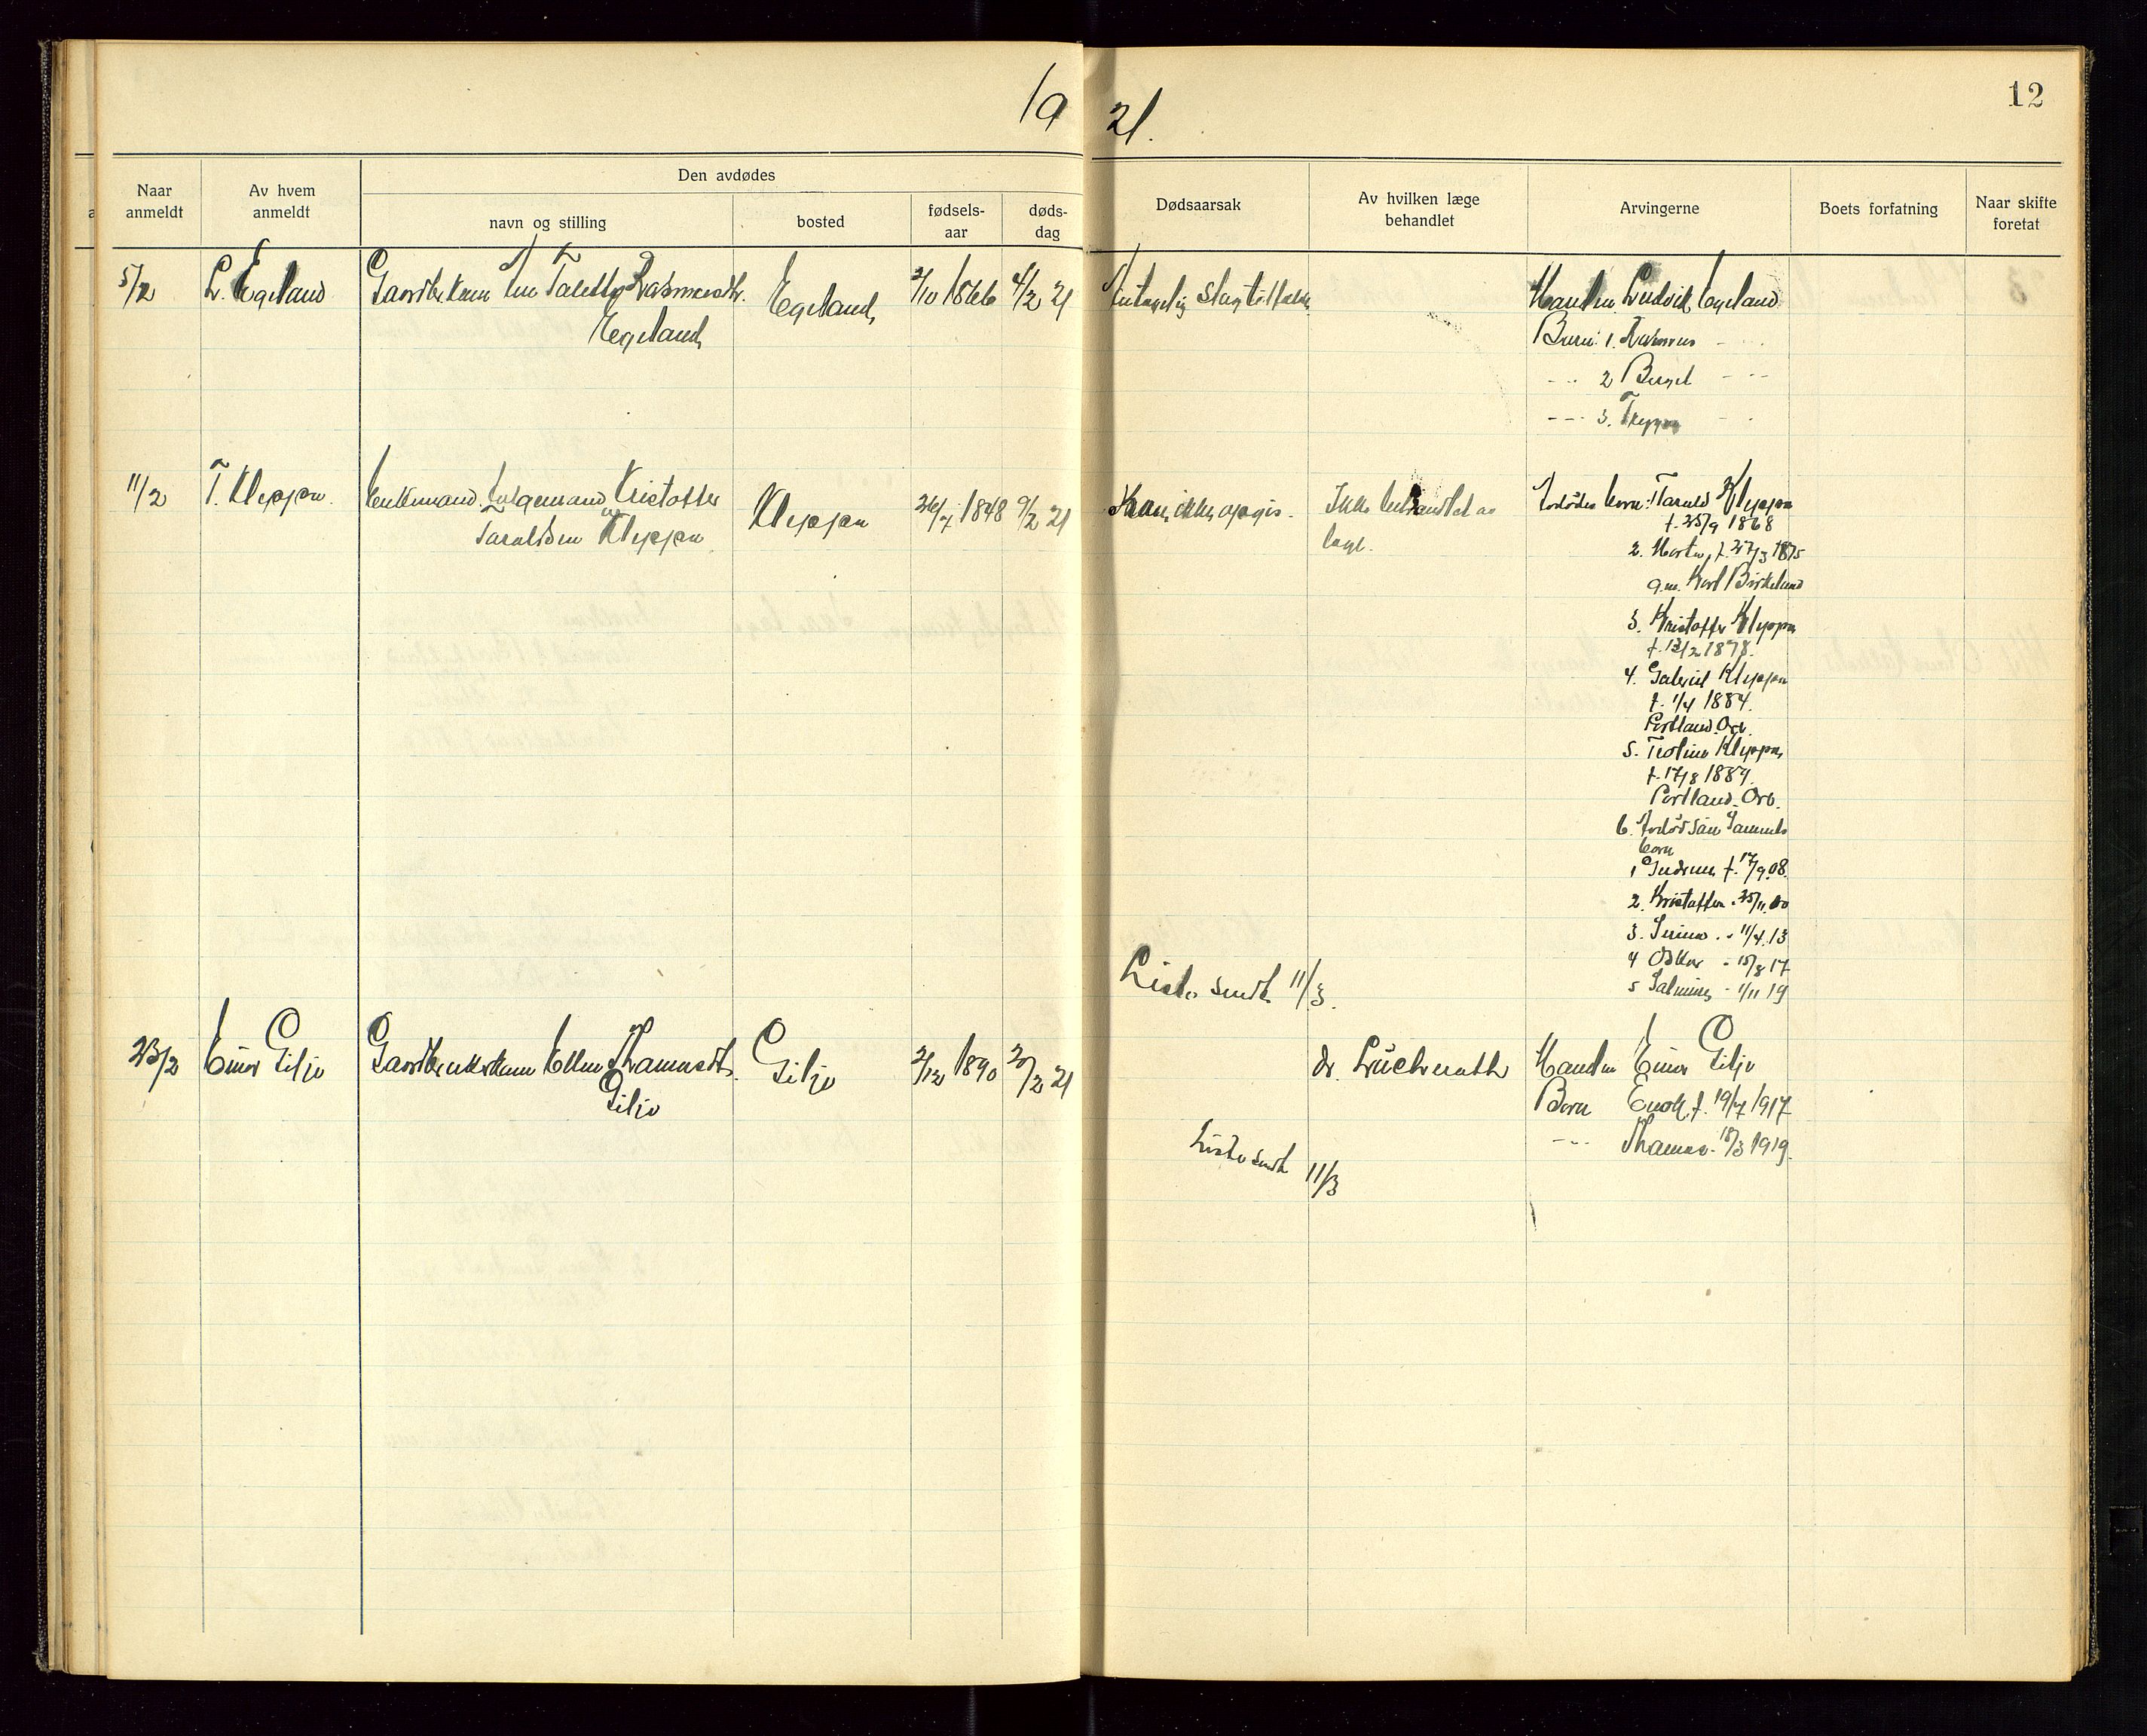 19 21.
12
Naar anmeldt
Av hvem anmeldt
Den avdødes
navn og stilling
bosted
fødsels-aar
døds-dag
Dødsaarsak
Av hvilken læge behandlet
Arvingerne
Boets forfatning
Naar skifte foretat
5/2 L. Egeland Gaardbr.kone Talette Rasmusdtr. Egeland 2/10 1866 4/2 21 Antagelig slagtilfælde Manden Ludvik Egeland
Egeland
Børn: 1. Rasmus - -
- - 2 Bergel - -
- - 3.
11/2 T. Kleppan. Enkemand Kristoffer Kleppan 26/7 1848 9/2 21 Kan ikke opgis. Ikke behandlet av Avdødes børn: Tarald Kleppan
Taraldsen Kleppan
læge.
f. 25/9 1868
2. Marta, f. 27/3 1875
g.m. Karl Birkeland
3. Kristoffer Kleppan
f. 12/2 1878.
4. Gabriel Kleppan
f. 1/4 1884.
Portland. Ore.
5. Teoline Kleppan
f. 17/8 1889.
Portland. Ore.
6. Avdød søn Samuels
børn
1 Gudrun f. 17/9.08.
2. Kristoffer . 25/11.10
3. Serine . - 11/4.13
4 Oskar - 15/8 17
5 Salmine - 1/11 19
Liste sendt 11/3.
23/2 Einar Giljo Gaardbrukerkone Ellen Thomasdtr. Giljo 2/12 1890 20/2 21 dr. Lüchrath Manden Einar Giljo
Giljo
Børn Enok, f. 19/7 1917
- - Thomas. 18/3 1919.
Liste sendt 11/3